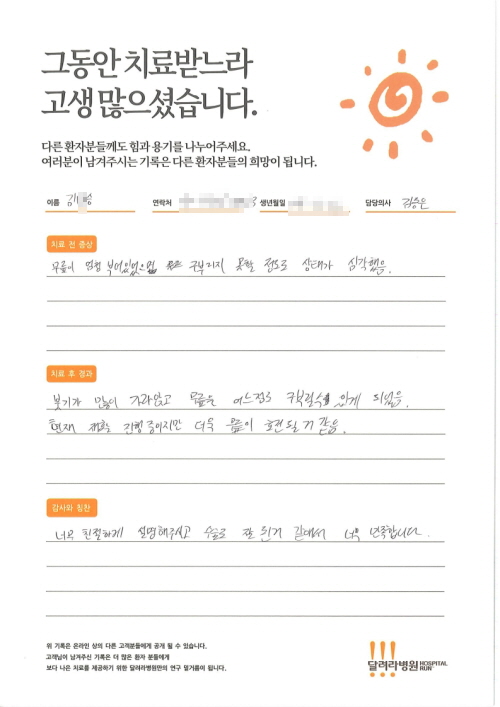 그동안 치료받느라
고생 많으셨습니다.
다른 환자분들께도 힘과 용기를 나누어주세요.
여러분이 남겨주시는 기록은 다른 환자분들의 희망이 됩니다.
이름 연락처 생년월일 담당의사
치료 전 증상
무릎이 부어있었으며 구부리지 못할 정도로 상태가 심각했음.
치료 후 경과
붓기가 많이 가라앉고 무릎을 어느정도 구부릴수 있게 되었음.
현재 재활 진행중이지만 더욱 무릎이 호전될 거 같음.
감사와 칭찬
너무 친절하게 설명해주시고 수술도 잘 된거 같아서 너무 만족합니다.
위 기록은 온라인 상의 다른 고객분들에게 공개 될 수 있습니다.
고객님이 남겨주신 기록은 더 많은 환자 분들에게
보다 나은 치료를 제공하기 위한 달려라병원만의 연구 밑거름이 됩니다.
달려라병원 HOSPITAL RUN